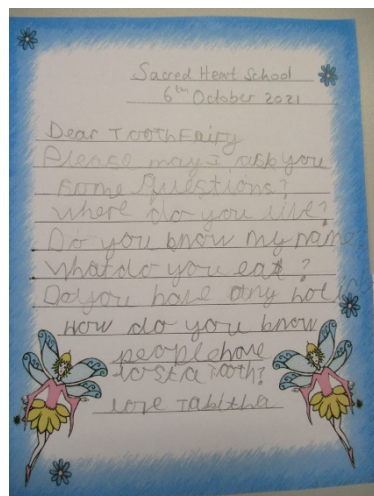 Sacred Heart School
6th October 2021
Dear Tooth Fairy
Please may I ask you
some Questions?
Where do you live?
Do you know my name
What do you eat?
Do you have any
How do you know
people have
lost a Tooth?
love Tabitha